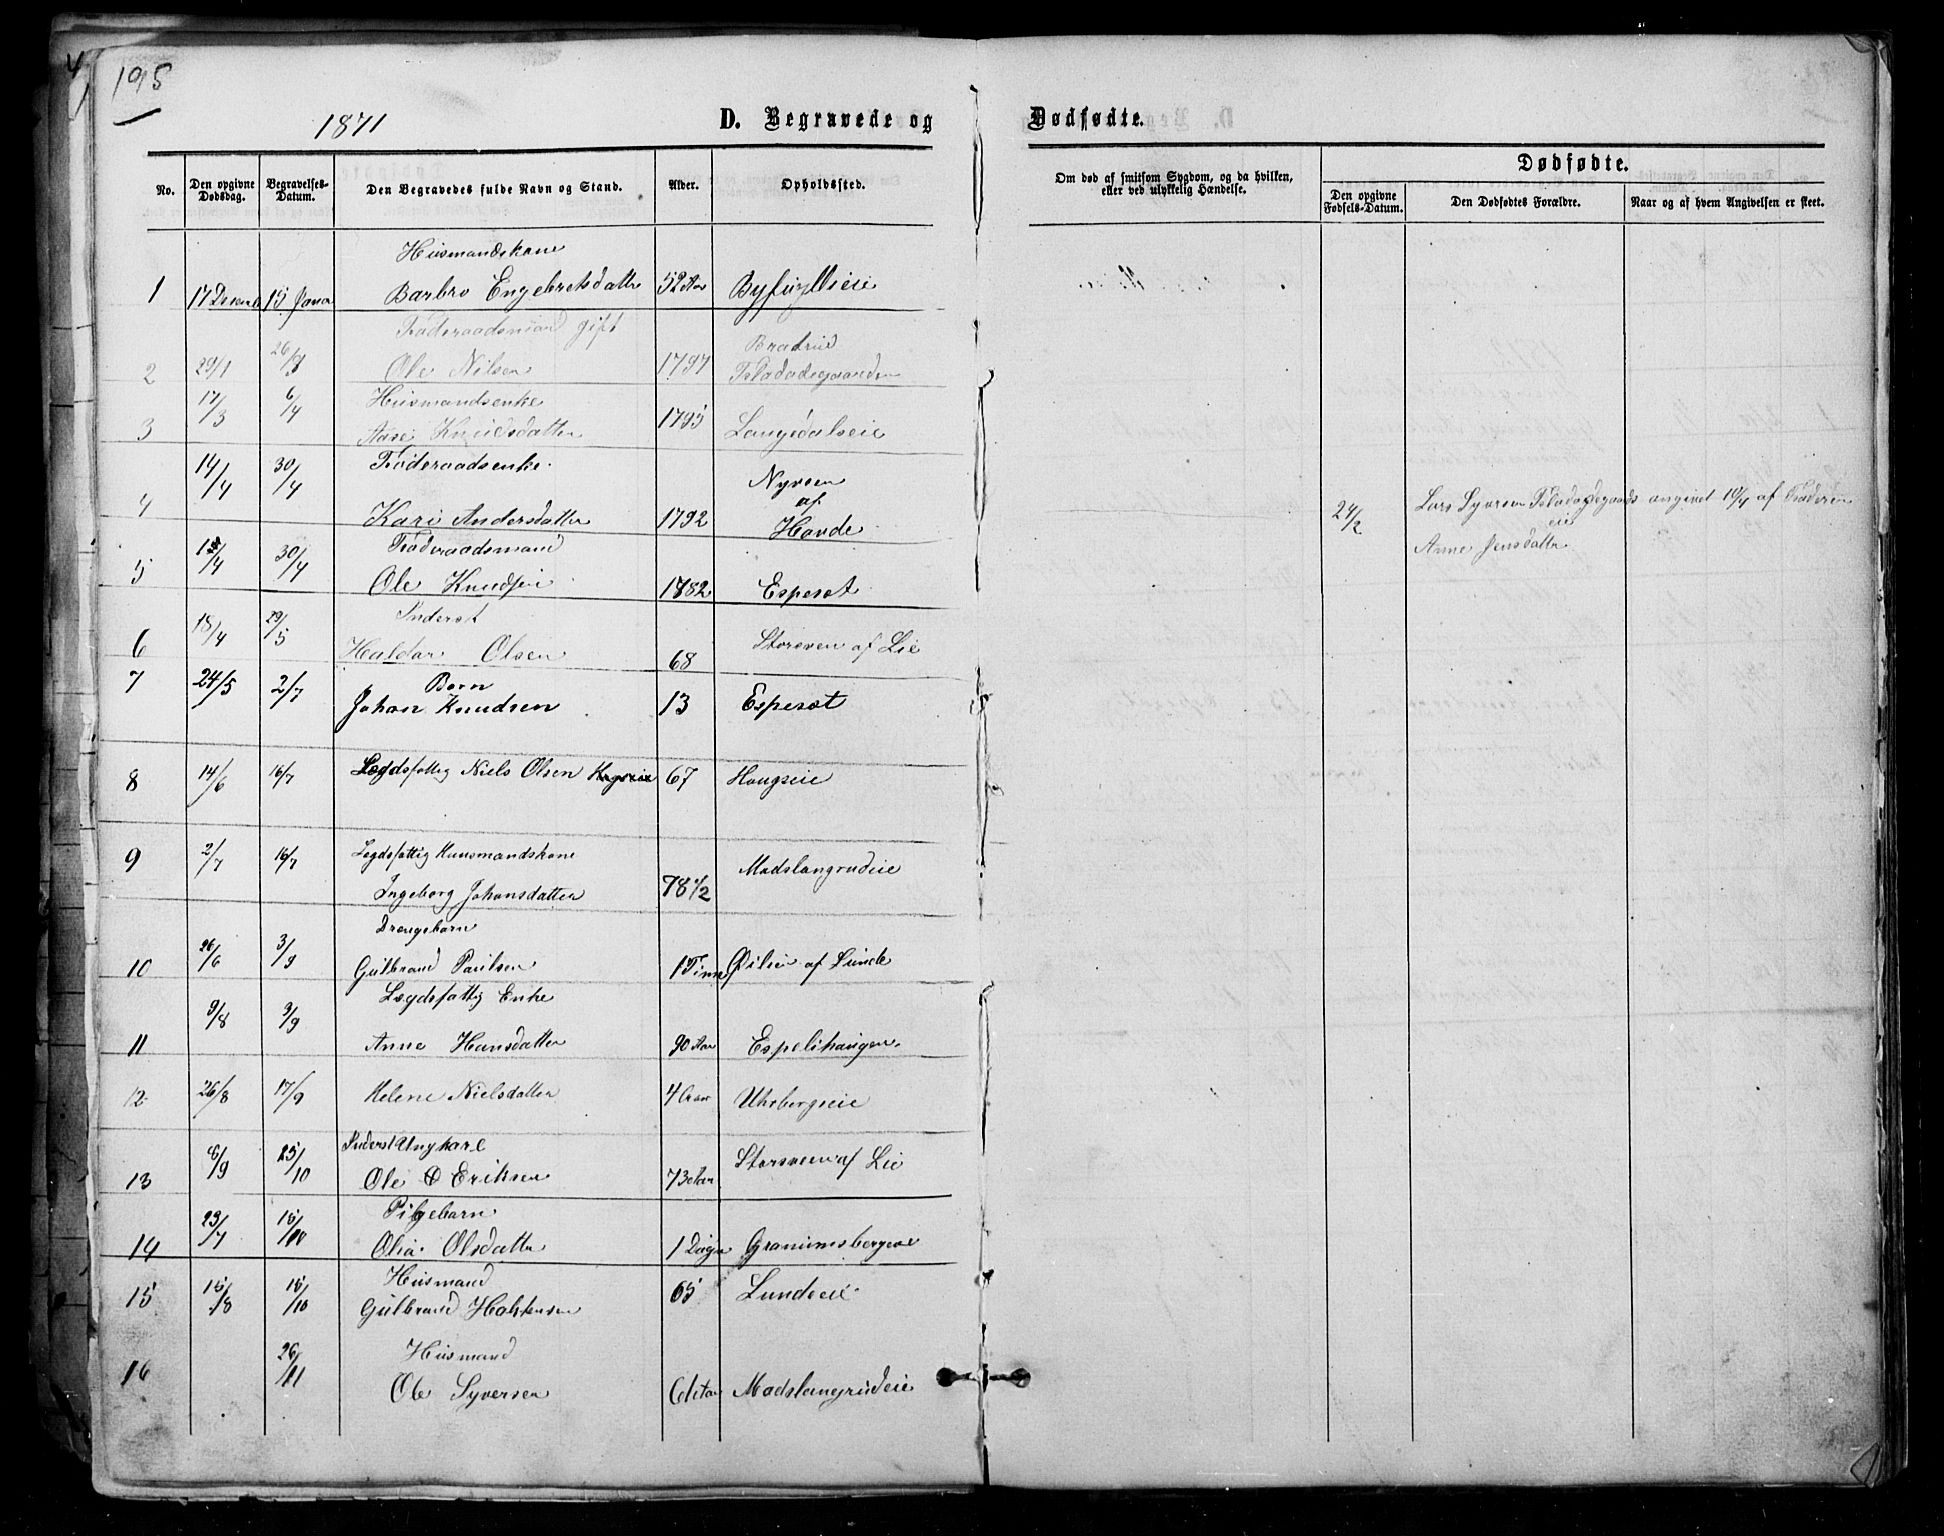 195
1871
D. Begravede og Dødfødte.
No.
Den opgivne Dødsdag.
Begravelses-Datum.
Den Begravedes fulde Navn og Stand.
Alder.
Opholdssted.
Om død af smitsom Sygdom, og da hvilken, eller ved ulykkelig Hændelse.
Dødfødte.
Den opgivne Fødsels-Datum.
Den Dødfødtes Forældre.
Naar og af hvem Angivelsen er skeet.
Husmandskone
1 17 15 Barbro Engebretsdatter 52 Aar
Føderaadsmand gift Bratrud
2 29/1 26/3 Ole Nilsen 1797
17/3 6/4 Husmandsenke
3 Aase Knudsdatter 1795 Langedalseie
14/4 30/4 Føderaadsenke Nyveen
af
4 Kari Andersdatter 1792 Hovde
24/2 Lars Syversen angivet 10/4 af Faderen
eie
Anne Jensdatter
30/4 Føderaadsmand
5 Ole Knudsen 1782 Esperæt
18/4 29/5 Inderst
6 Haldor Olsen 68 Storeven af Lie
7 24/5 2/7 Barn
Johan Knudsen 13 Esperæt
8 14/6 16/7 Lægdsfattig Niels Olsen 67 Haugseie
9 2/7 16/7 Legdsfattig Huusmandskone
Ingeborg Johansdatter 78 1/2 Madslangrudeie
Drengebarn
10 26/6 3/9 Gulbrand Paulsen 1 Time af Lunde
9/8 3/9 Lægdsfattig Enke
11 Anne Hansdatter 90 Aar Espelihaugen
12 26/8 17/9 Helene Nielsdatter 4 Aar Uhrbergseie
Inderst Ungkarl
13 6/9 25/10 Ole Eriksen 73 Aar Storeveen af Lie
Pigebarn
14 15/10 Olia Olsdatter 1 Dag
15 15/8 15/10 Husmand
Gulbrand Halstensen 65 Lundeeie
26/11 Husmand
16 Ole Syversen Madslangrudeie